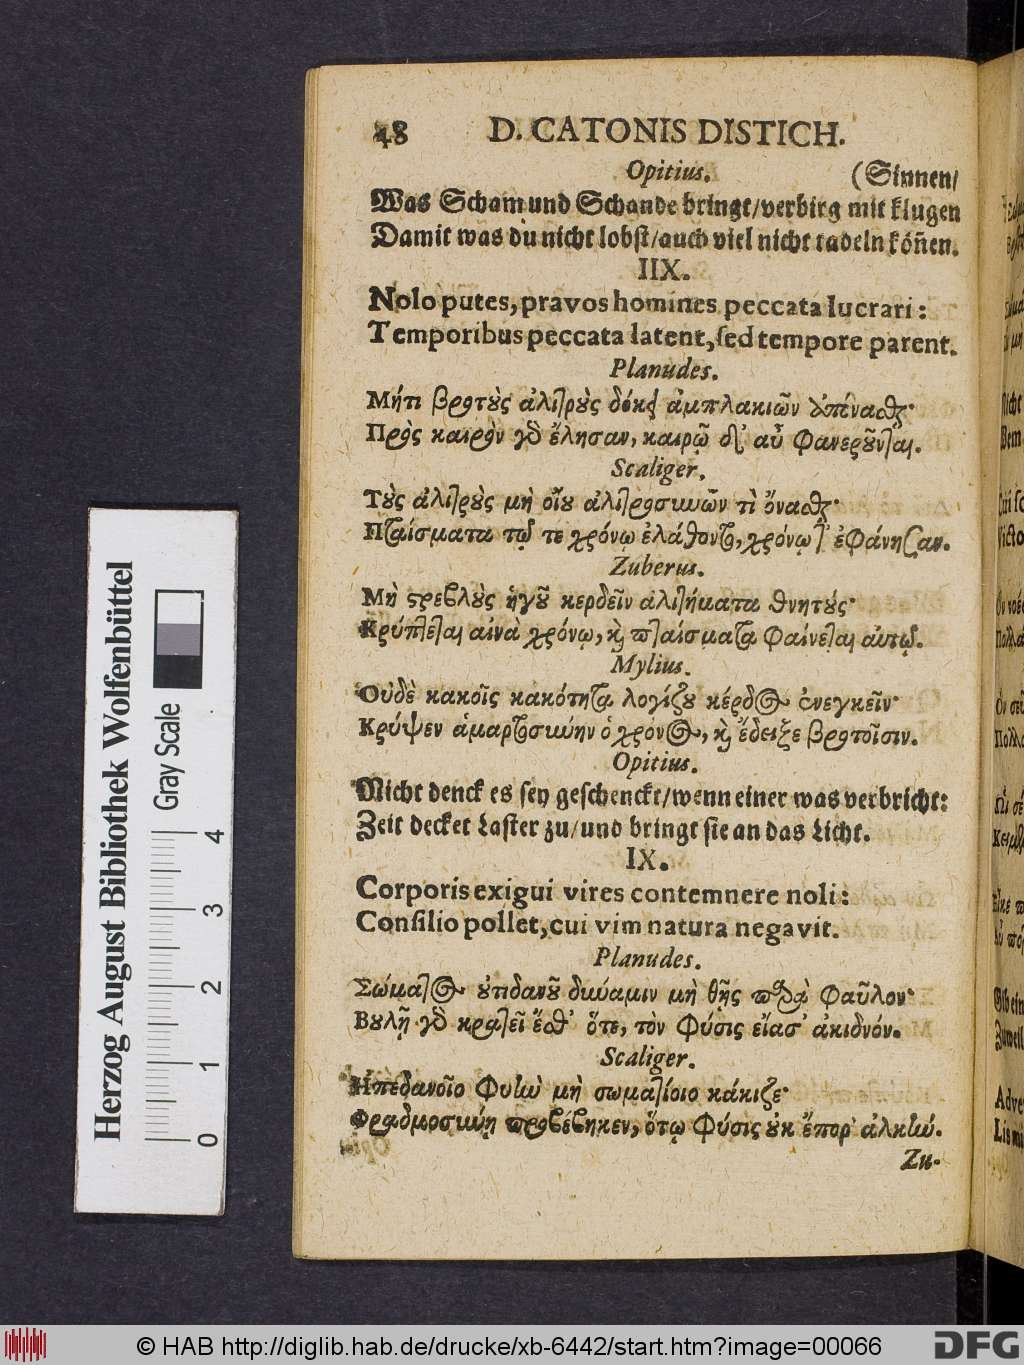 48 D. CATONIS DISTICH.
Opitius. (Sinnen/
Was Scham und Schande bringt/verbirg mit klugen
Damit was du nicht lobst/auch viel nicht tadeln köñen.
IIX.
Nolo putes, pravos homines peccata lucrari:
Temporibus peccata latent, sed tempore parent.
Planudes.
Μήτι βροτοὺς ἀλιτροὺς δόκει ἀμπλακιῶν ἀπόνασθαι·
Πρὸς καιρὸν γὸ ἔλησαν, καιρῷ δ' αὖ φανεροῦνται.
Scaliger.
Τοὺς ἀλιτροὺς μὴ οἴου ἀλιτροσυνῶν τὶ ὄνασθαι·
Πταίσματα τῷ τε χρόνῳ ἐλάθοντο, χρόνῳ τ' ἐφάνησαν.
Zuberus.
Μὴ στρεβλοὺς ἡγοῦ κερδεῖν ἀλιτήματα θνητούς·
Κρύπτεται αἰνὰ χρόνῳ, καὶ πταίσματα φαίνεται αὐτῷ.
Mylius.
Οὐδὲ κακοῖς κακότητα λογίζου κέρδος ἐνεγκεῖν·
Κρύψεν ἁμαρτοσύνην ὁ χρόνος, καὶ ἔδειξε βροτοῖσιν.
Opitius.
Nicht denck es sey geschenckt/wenn einer was verbricht:
Zeit decket Laster zu/und bringt sie an das Licht.
IX.
Corporis exigui vires contemnere noli:
Consilio pollet, cui vim natura negavit.
Planudes.
Σώματος οὐτιδανοῦ δύναμιν μὴ θῇς παρὰ φαῦλον·
Βουλῇ γὸ κρατεῖ ἔσθ' ὅτε, τὸν φύσις εἴασ' ἀκιδνόν.
Scaliger.
Ἠπεδανοῖο φυὼ μὴ σωματίοιο κάκιζε·
Φραδμοσύνῃ προβέβηκεν, ὅτῳ φύσις οὐκ ἔπορ' ἀλκὼ.
Zu-
Herzog August Bibliothek Wolfenbüttel
Gray Scale
0 1 2 3 4
© HAB http://diglib.hab.de/drucke/xb-6442/start.htm?image=00066
DFG